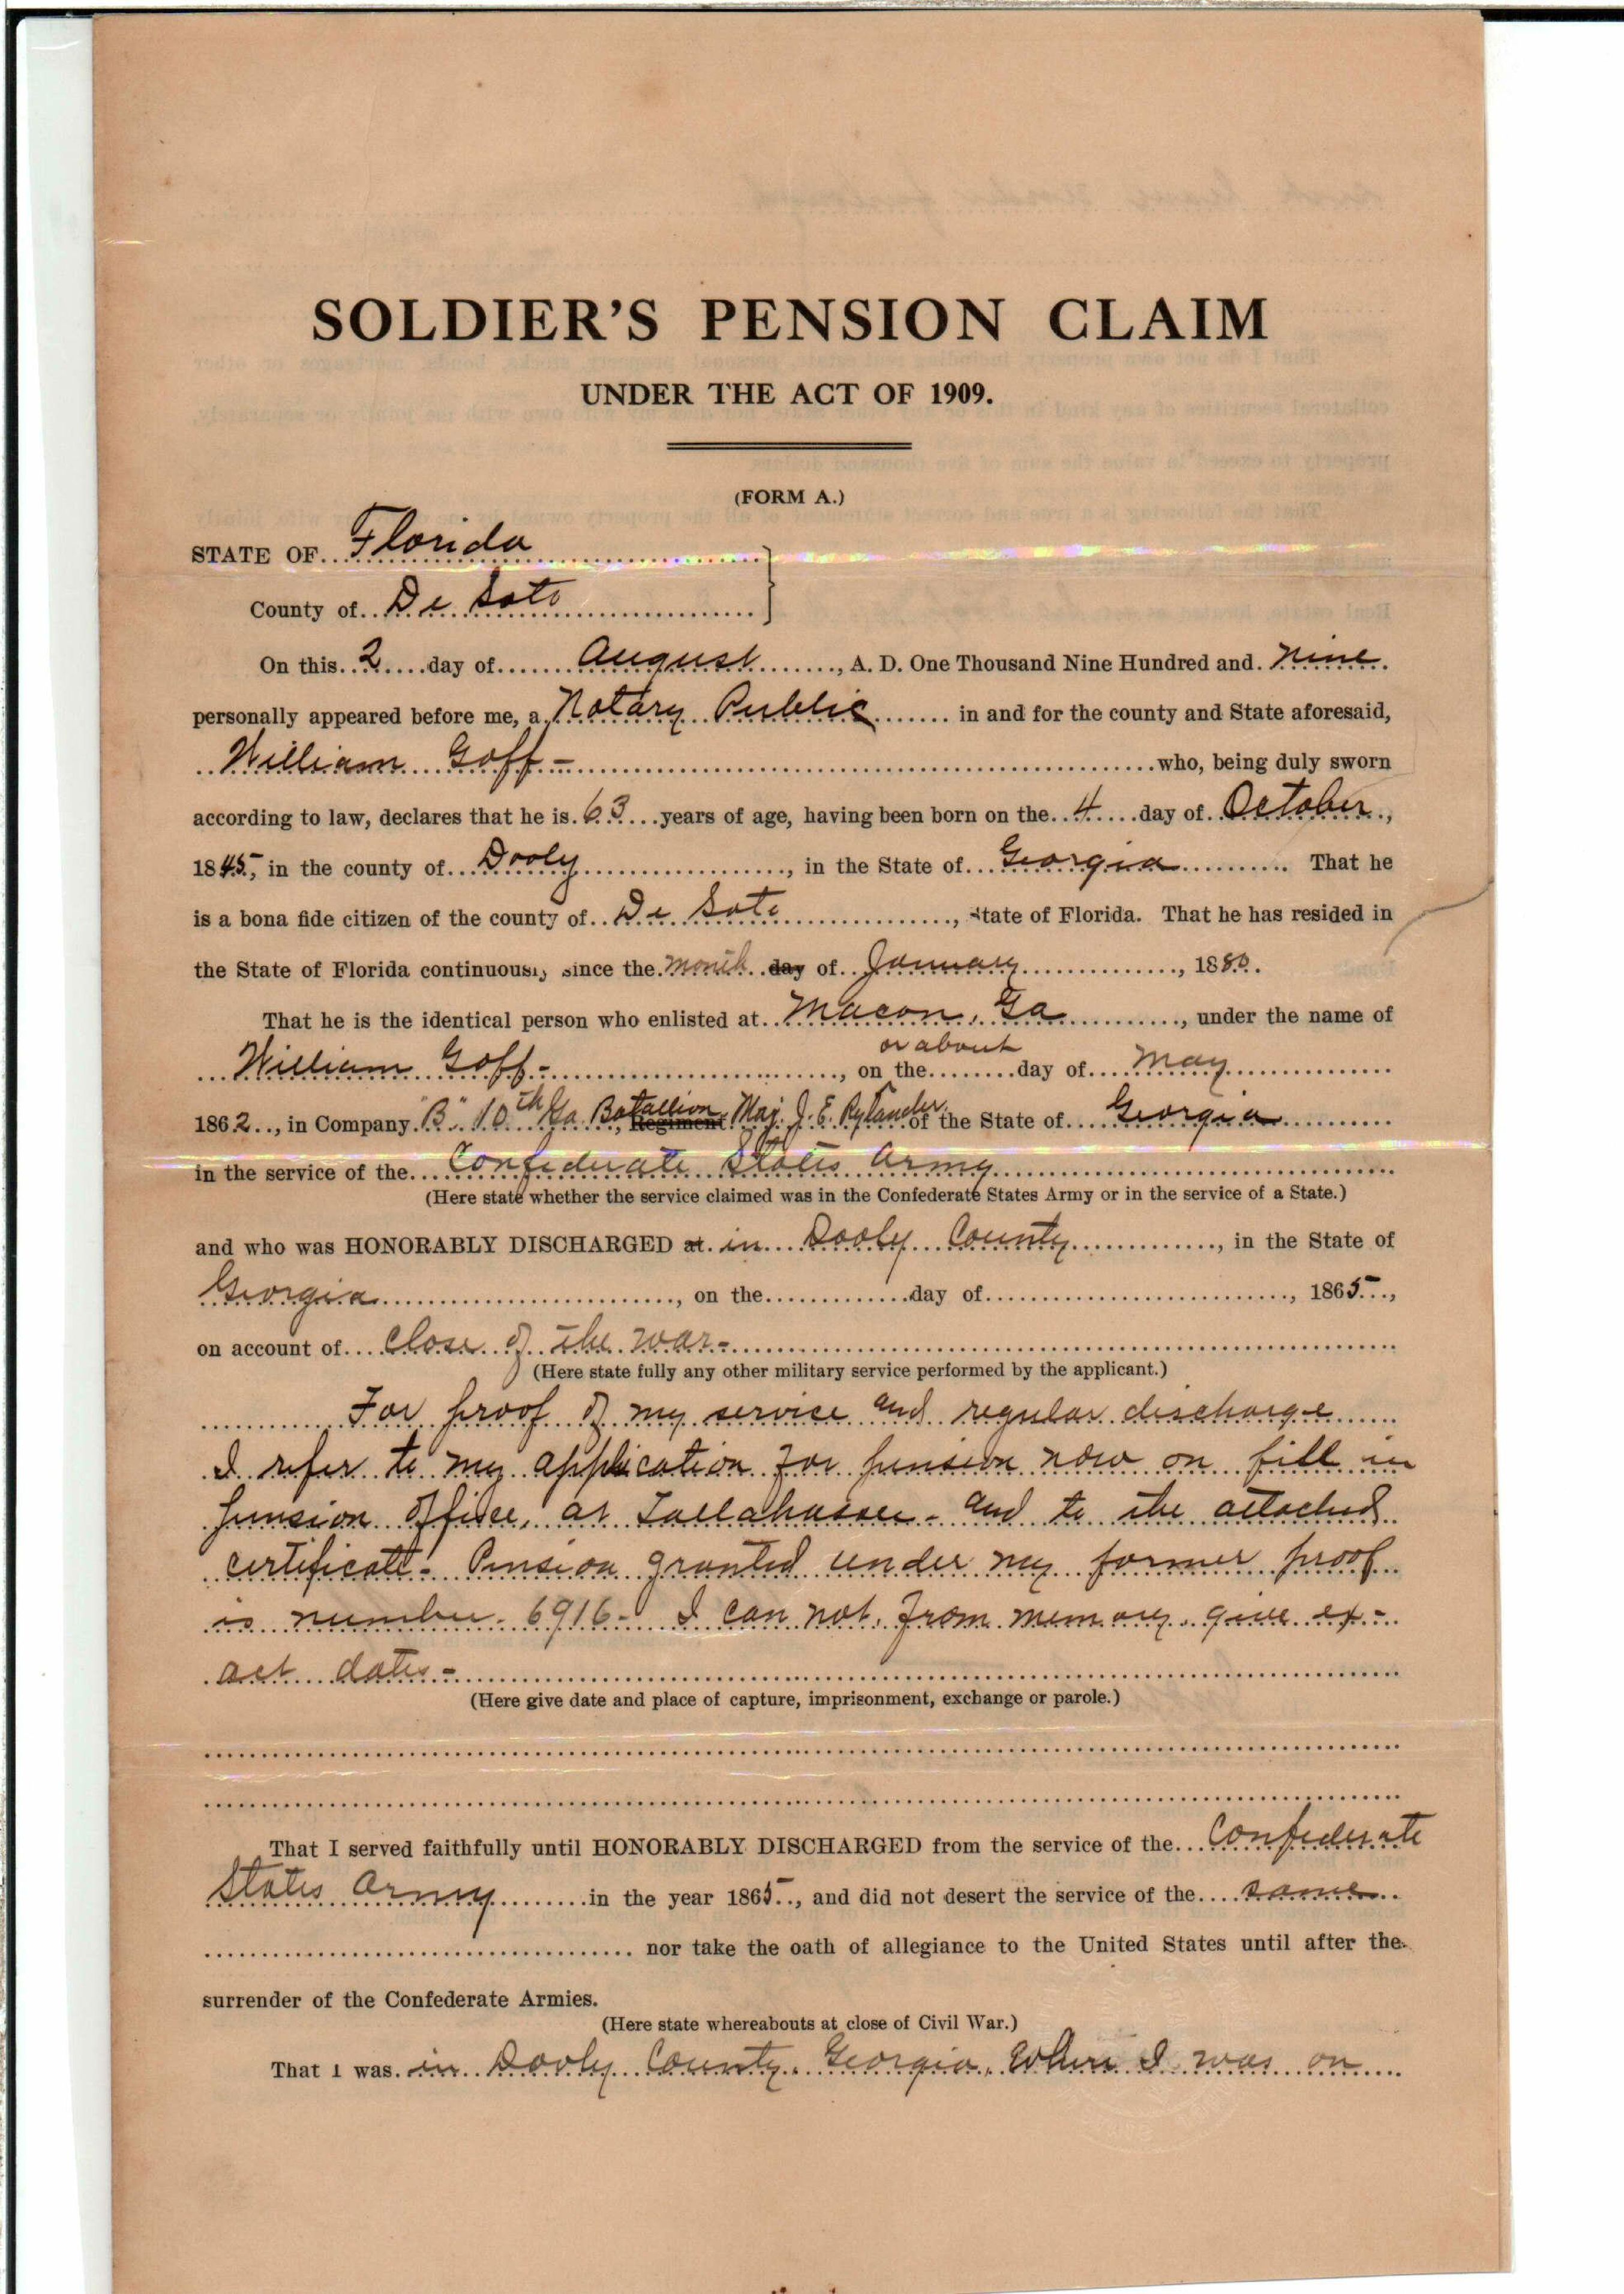 SOLDIER'S PENSION CLAIM
UNDER THE ACT OF 1909.
(FORM A.)
STATE OF Florida
County of De Soto
On this 2 day of August, A. D. One Thousand Nine Hundred and nine
personally appeared before me, a Notary Public in and for the county and State aforesaid,
William Goff - who, being duly sworn
according to law, declares that he is 63 years of age, having been born on the 4 day of October,
1845, in the county of Dooly, in the State of Georgia. That he
is a bona fide citizen of the county of De Soto, State of Florida. That he has resided in
the State of Florida continuously since the month day of January, 1880.
That he is the identical person who enlisted at Macon, Ga, under the name of
or about
William Goff -, on the day of May
1862, in Company "B" 10th Ga. Batallion, Regiment Maj. J. E. Rylander of the State of Georgia
in the service of the Confederate States Army
(Here state whether the service claimed was in the Confederate States Army or in the service of a State.)
and who was HONORABLY DISCHARGED at in Dooly County, in the State of
Georgia, on the day of, 1865,
on account of Close of the war -
(Here state fully any other military service performed by the applicant.)
For proof of my service and regular discharge
I refer to my application for pension now on fill in
pension office, at Tallahassee - and to the attached
certificate - Pension granted under my former proof
is number 6916 - I can not, from memory, give ex-
act dates -
(Here give date and place of capture, imprisonment, exchange or parole.)
That I served faithfully until HONORABLY DISCHARGED from the service of the Confederate
States Army in the year 1865, and did not desert the service of the same
nor take the oath of allegiance to the United States until after the
surrender of the Confederate Armies.
(Here state whereabouts at close of Civil War.)
That I was in Dooly County, Georgia, Where I was on